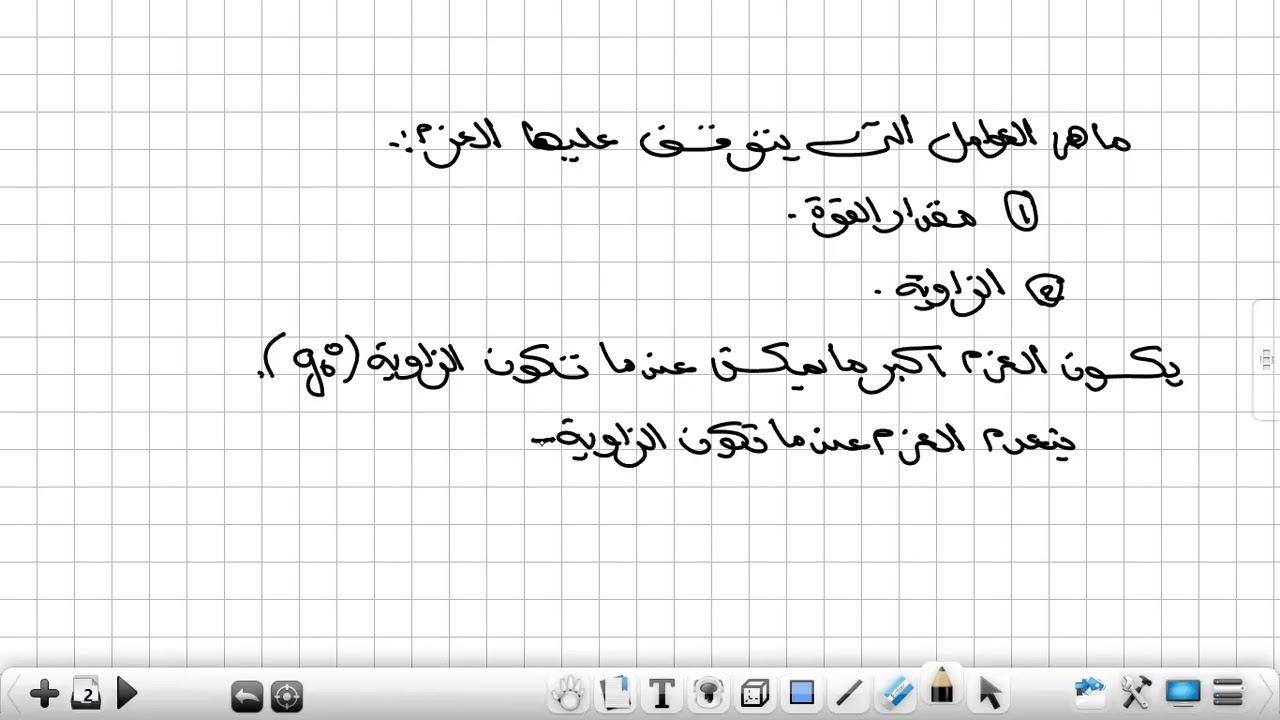 ما هي العوامل التي يتوقف عليها العزم؟!.
① مقدار القوة .
② الزاوية .
يكون العزم أكبر ما يمكن عندما تكون الزاوية (90°).
ينعدم العزم عندما تكون الزاوية
2